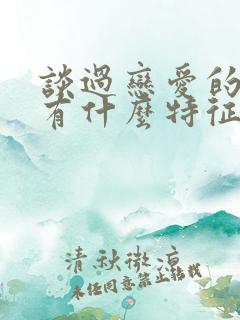 談過戀愛的
有什麼特征
清秋微涼
未经同意禁止转载